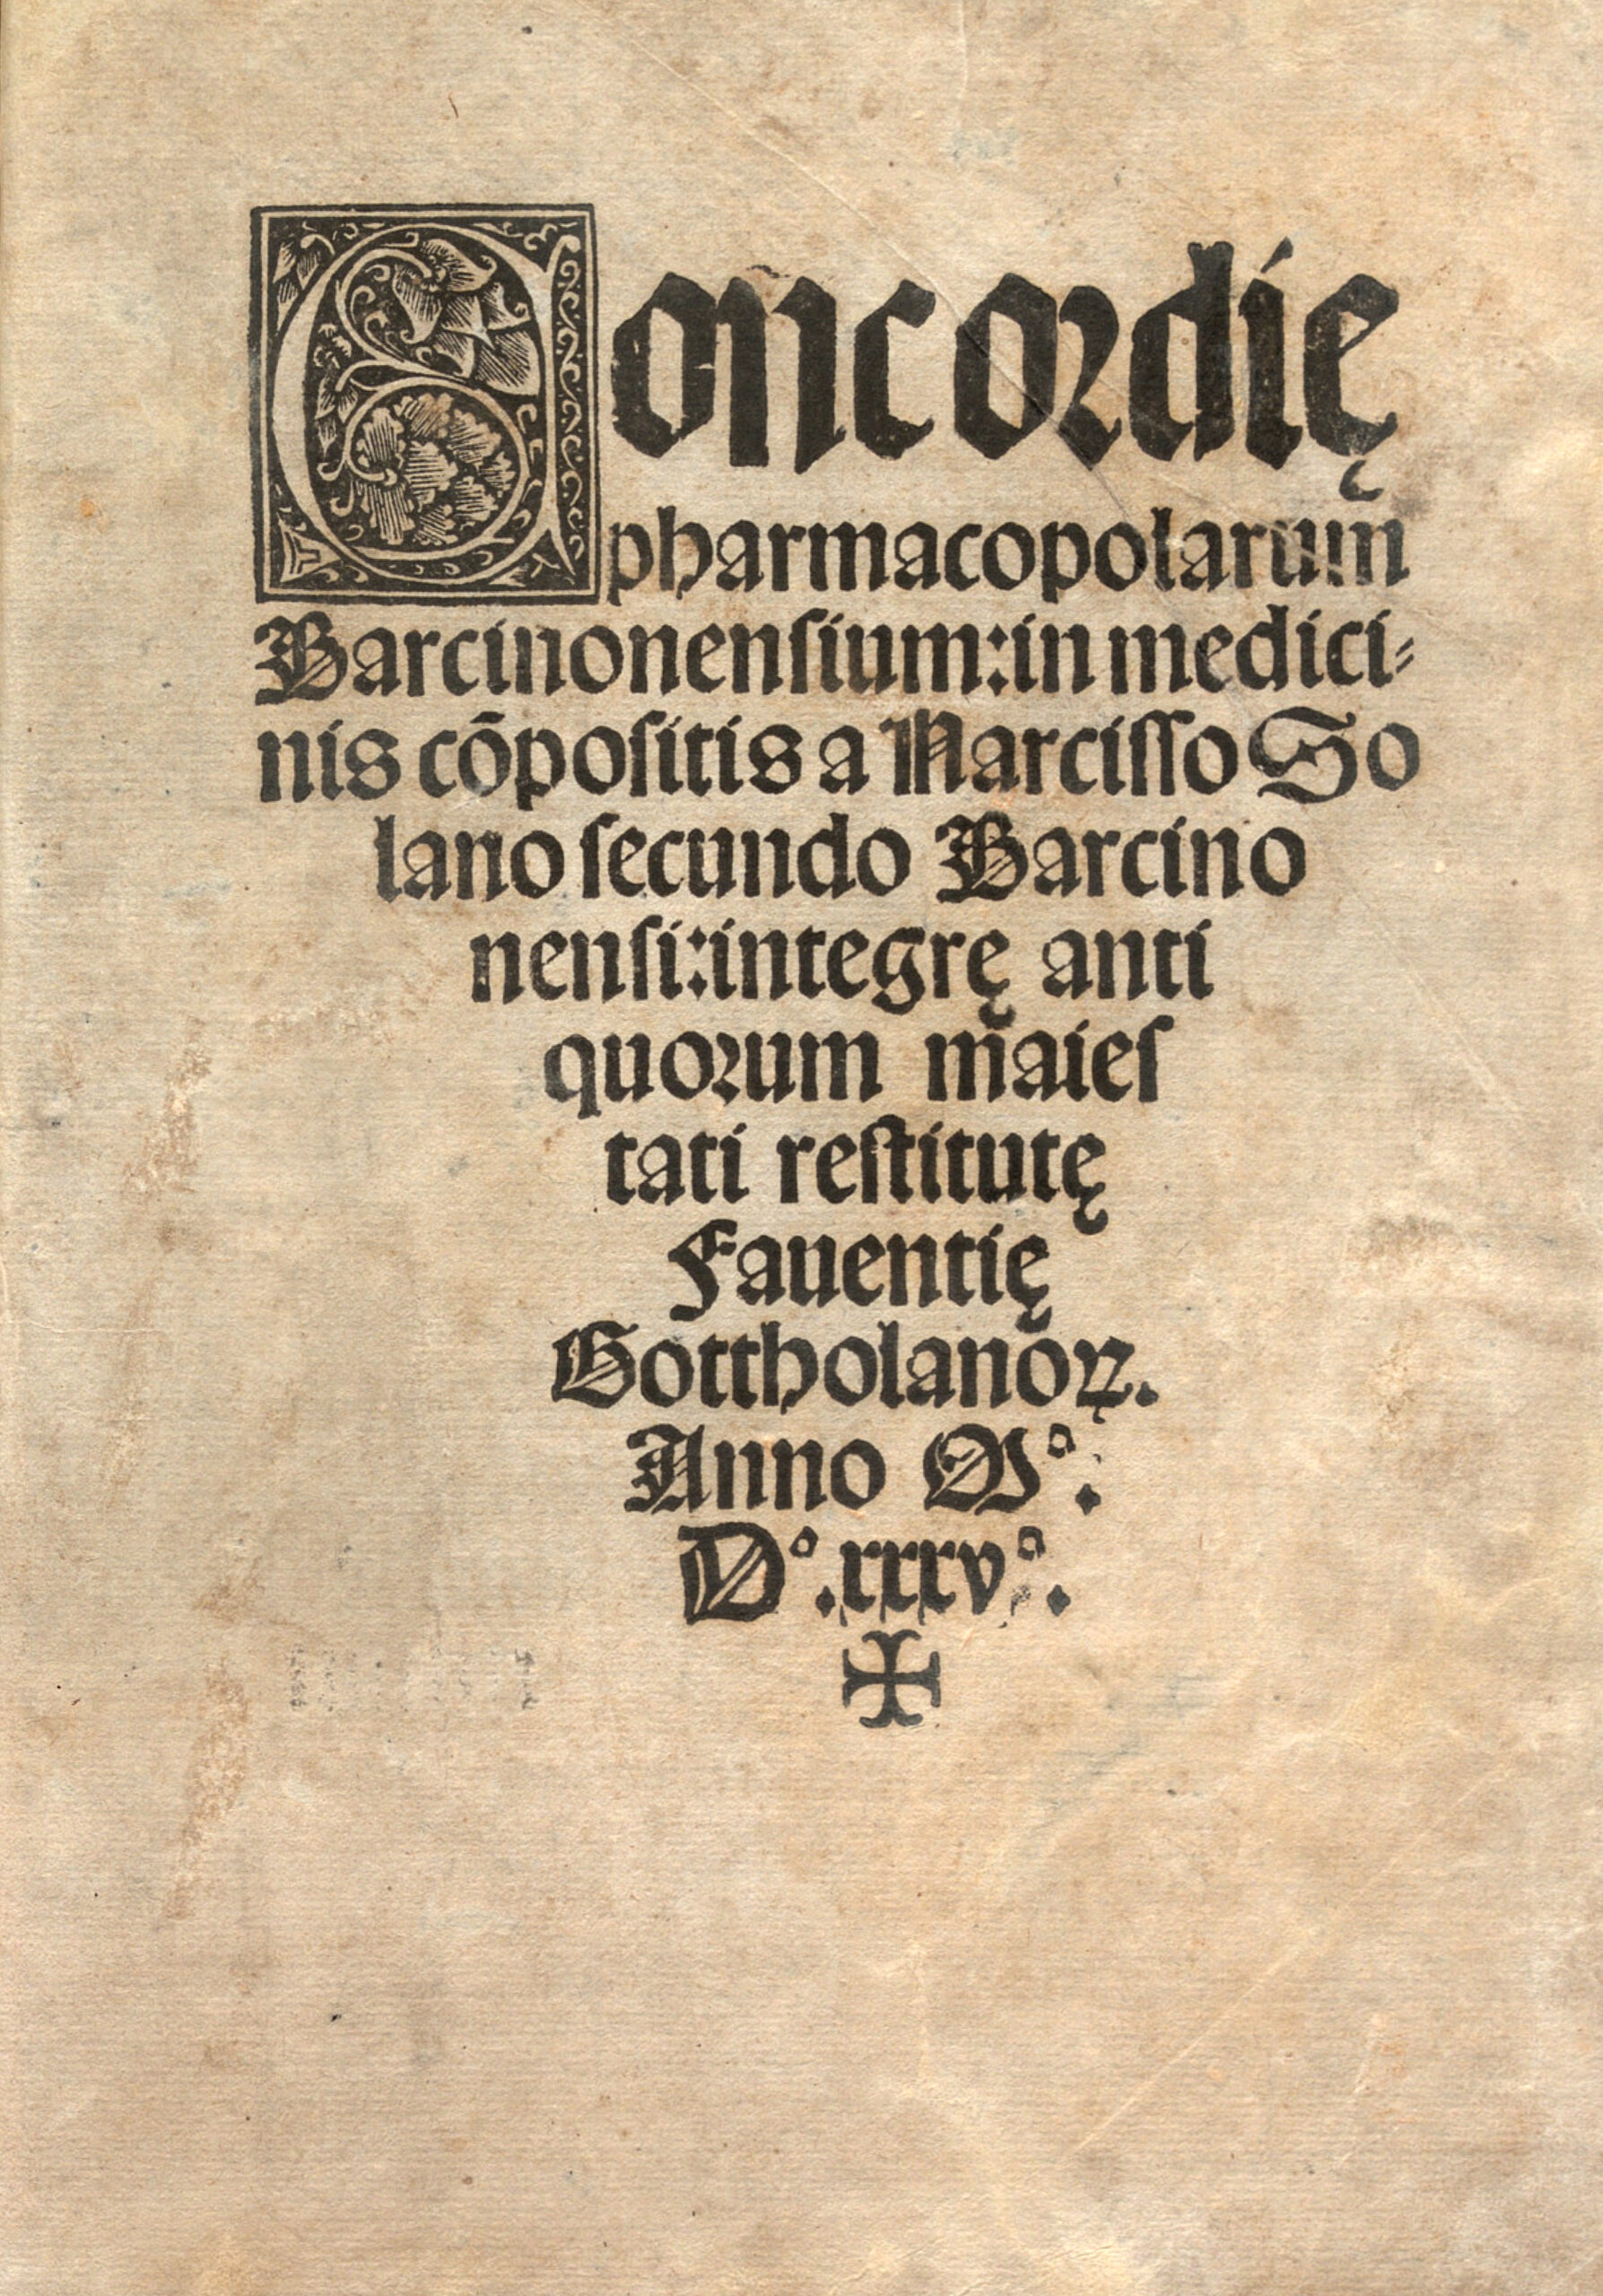 Concordię
pharmacopolarum
Barcinonensium:in medici⸗
nis cōpositis a Narcisso So
lano secundo Barcino
nensi:integrę anti
quorum maies
tati restitutę
Fauentię
Gottholanoꝝ.
Anno Mº.
Dº.xxxvº.